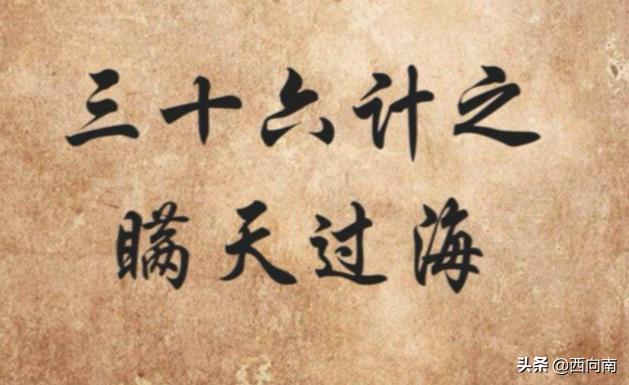 三十六计之
瞒天过海
头条 @西向南